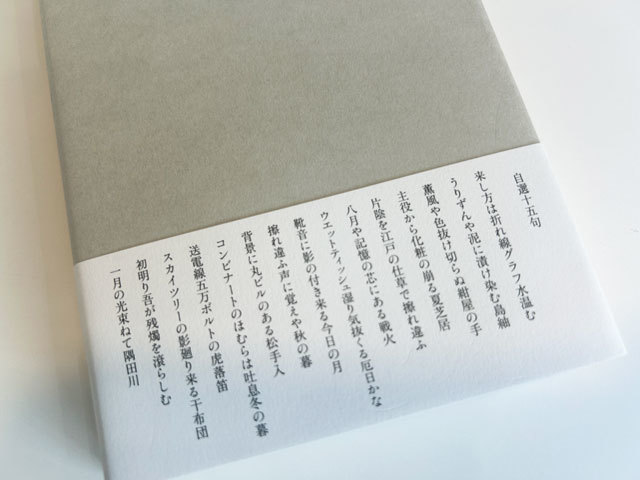 自選十五句
来し方は折れ線グラフ水温む
うりずんや泥に漬け染む島紬
薫風や色抜け切らぬ紺屋の手
主役から化粧の崩る夏芝居
片陰を江戸の仕草で擦れ違ふ
八月や記憶の芯にある戦火
ウエットティッシュ湿り気抜くる厄日かな
靴音に影の付き来る今日の月
擦れ違ふ声に覚えや秋の暮
背景に丸ビルのある松手入
コンビナートのほむらは吐息冬の暮
送電線五万ボルトの虎落笛
スカイツリーの影廻り来る干布団
初明り吾が残燭を滾らしむ
一月の光束ねて隅田川